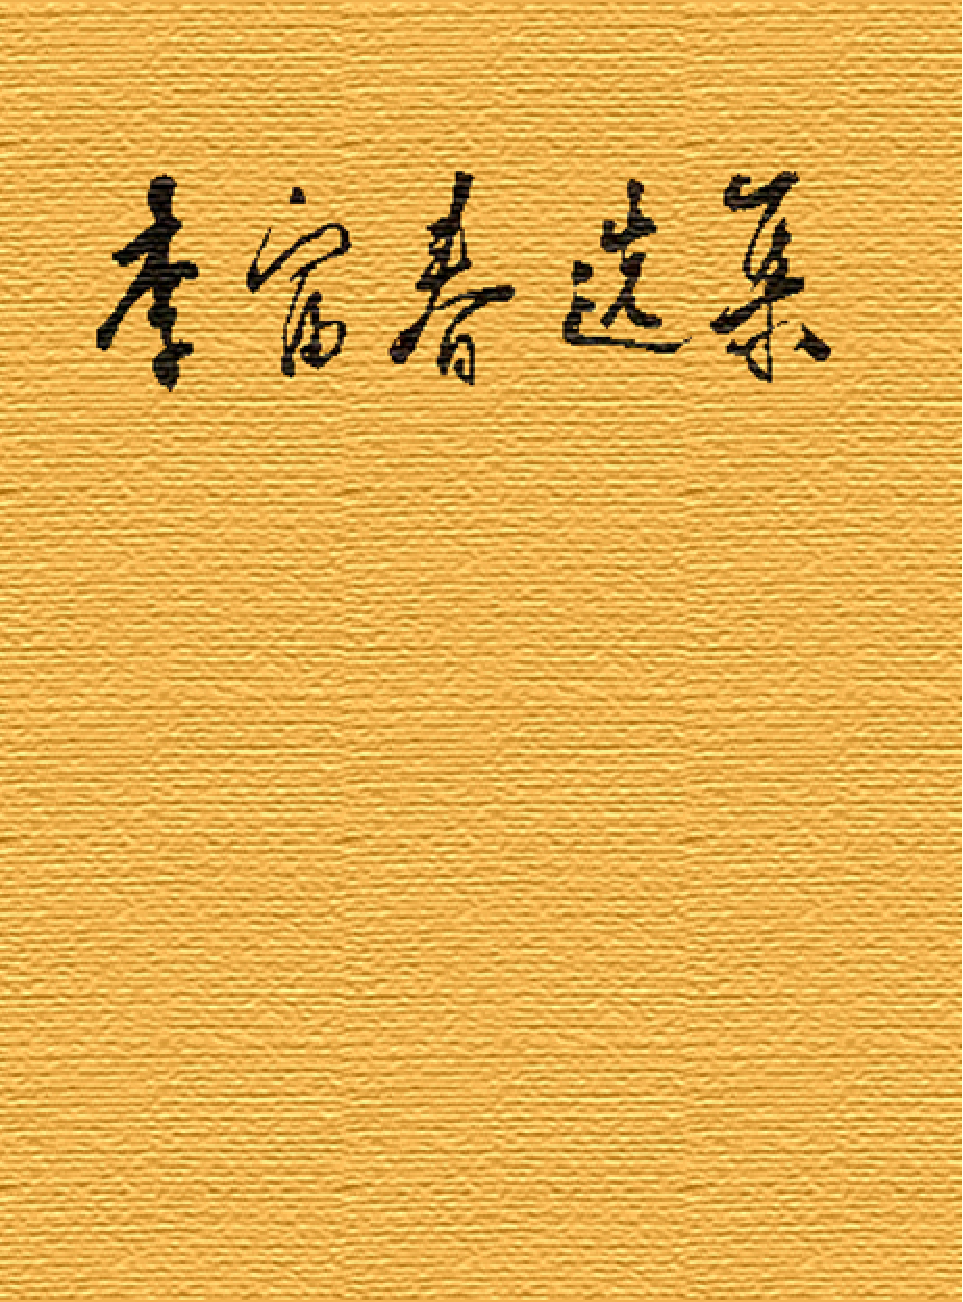 李富春选集